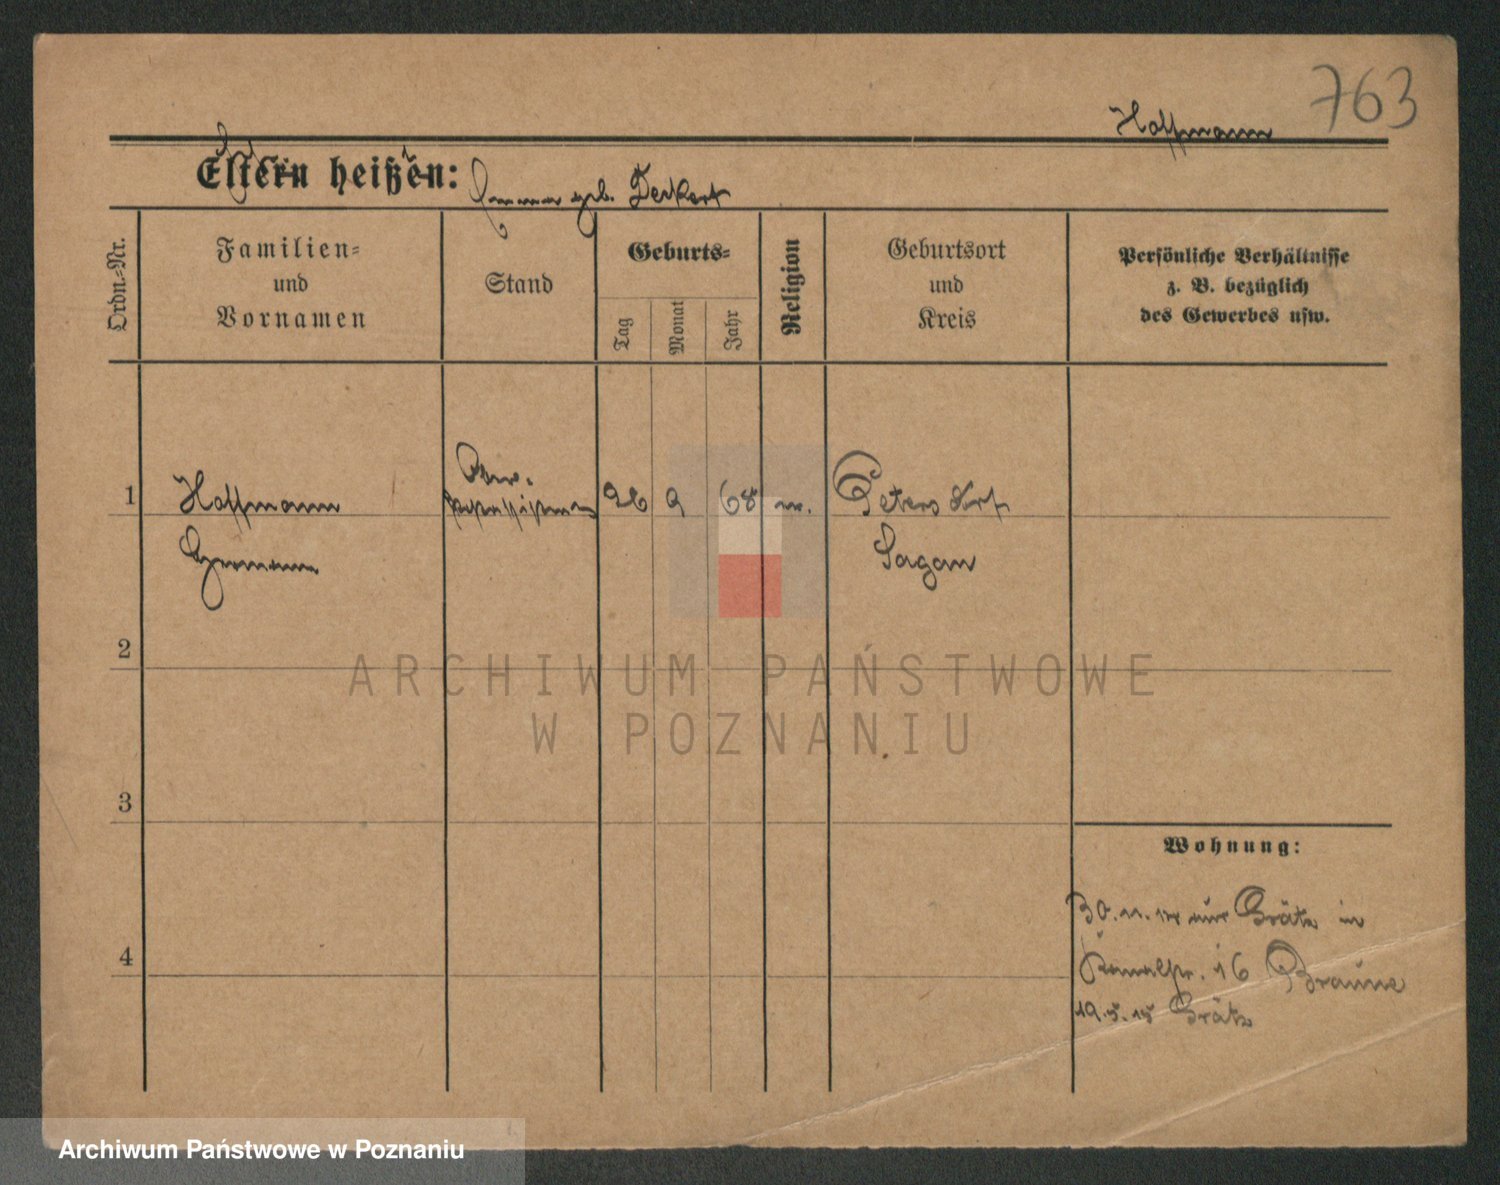 763
Hoffmann
Eltern heißen:
geb. Deckert
Ordn.-Nr.
Familien-
und
Vornamen
Stand
Geburts-
Tag
Monat
Jahr
Religion
Geburtsort
und
Kreis
Persönliche Verhältnisse
z. B. bezüglich
des Gewerbes usw.
1
Hoffmann
26 9 68
Petersdorf
Hermann
Sagan
2
ARCHIWUM PAŃSTWOWE
W POZNANIU
3
Wohnung:
30. 11. Grätz in
4
Kanalstr. 16 Braune
19.5.15 Grätz
Archiwum Państwowe w Poznaniu